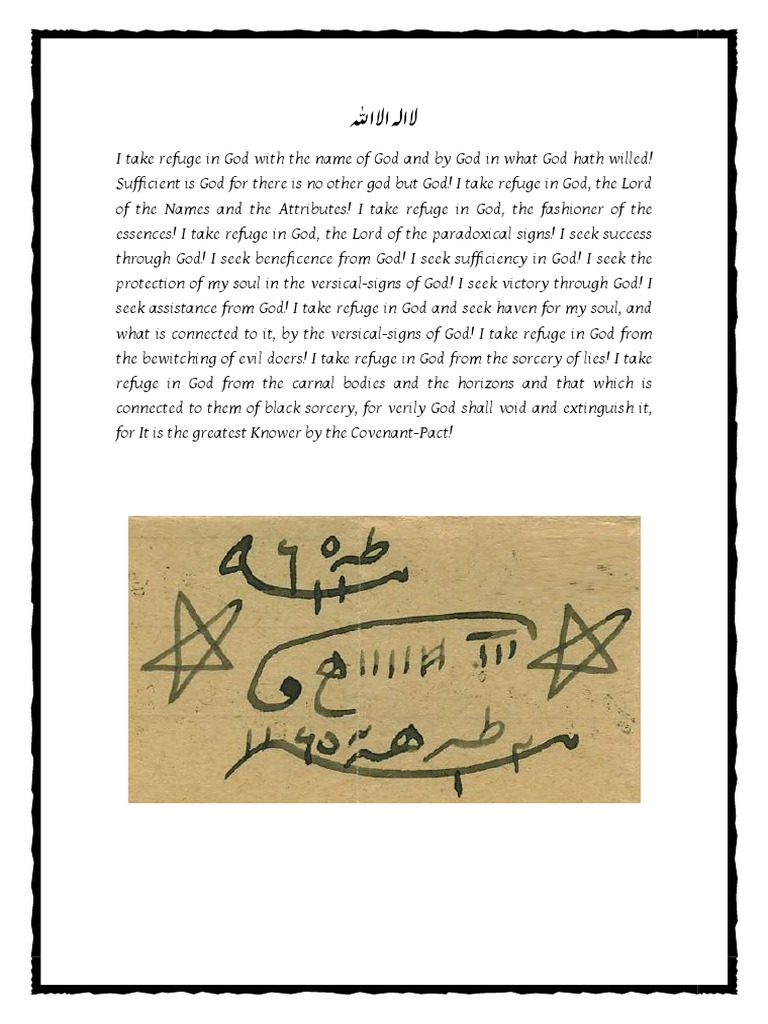 لااله الاالله
I take refuge in God with the name of God and by God in what God hath willed!
Sufficient is God for there is no other god but God! I take refuge in God, the Lord
of the Names and the Attributes! I take refuge in God, the fashioner of the
essences! I take refuge in God, the Lord of the paradoxical signs! I seek success
through God! I seek beneficence from God! I seek sufficiency in God! I seek the
protection of my soul in the versical-signs of God! I seek victory through God! I
seek assistance from God! I take refuge in God and seek haven for my soul, and
what is connected to it, by the versical-signs of God! I take refuge in God from
the bewitching of evil doers! I take refuge in God from the sorcery of lies! I take
refuge in God from the carnal bodies and the horizons and that which is
connected to them of black sorcery, for verily God shall void and extinguish it,
for It is the greatest Knower by the Covenant-Pact!